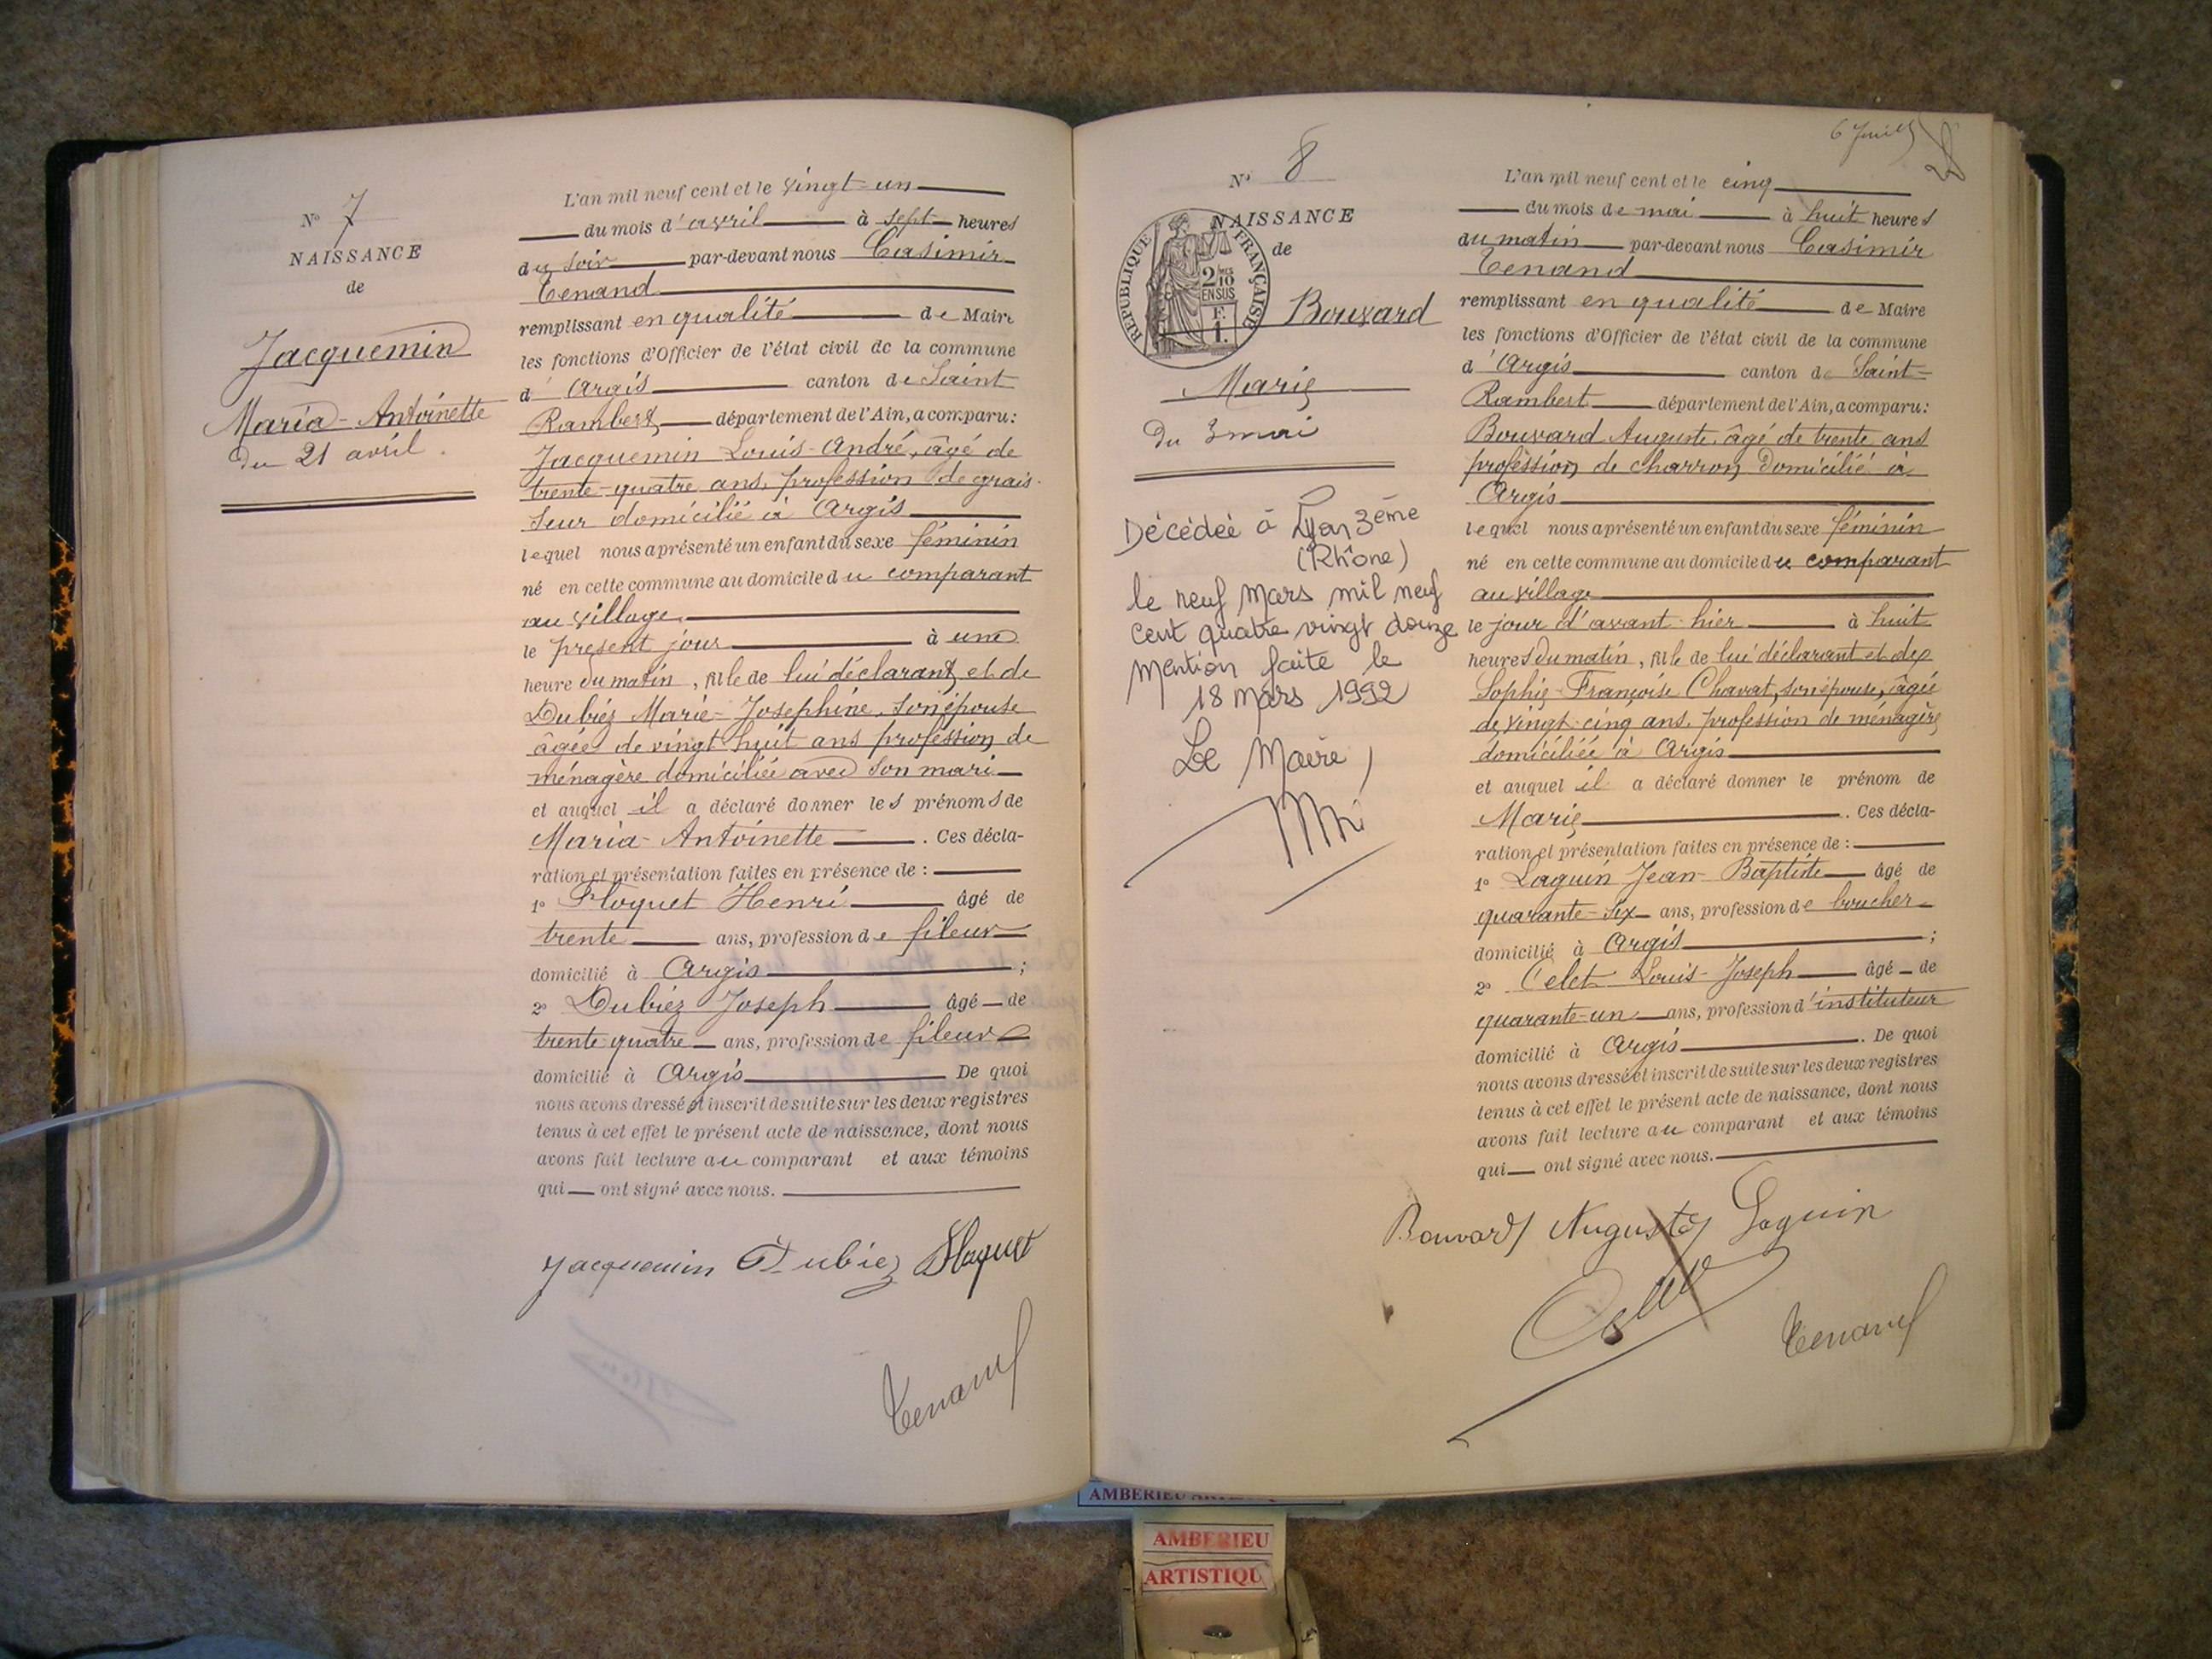 N° 7
NAISSANCE
de
Jacquemin
Maria-Antoinette
du 21 avril.
L'an mil neuf cent et le vingt-un
du mois d'avril à sept heures
du soir par-devant nous Casimir
Tenand
remplissant en qualité de Maire
les fonctions d'Officier de l'état civil de la commune
d'Argis canton de Saint
Rambert, département de l'Ain, a comparu:
Jacquemin Louis-André, âgé de
trente-quatre ans, profession de grais-
seur domicilié à Argis
lequel nous a présenté un enfant du sexe féminin
né en cette commune au domicile du comparant
au village,
le présent jour à une
heure du matin, fille de lui déclarant, et de
Dubiez Marie-Josephine, son épouse
âgée de vingt huit ans profession de
ménagère domiciliée avec son mari
et auquel il a déclaré donner les prénoms de
Maria-Antoinette. Ces décla-
ration et présentation faites en présence de :
1° Floquet Henri âgé de
trente ans, profession de fileur
domicilié à Argis ;
2° Dubiez Joseph âgé de
trente quatre ans, profession de fileur
domicilié à Argis De quoi
nous avons dressé et inscrit de suite sur les deux registres
tenus à cet effet le présent acte de naissance, dont nous
avons fait lecture au comparant et aux témoins
qui ont signé avec nous.
Jacquemin Dubiez Floquet
Tenand
6 Juill
N° 8
NAISSANCE
de
REPUBLIQUE FRANÇAISE
2/10
EN SUS
F.
1.
Bouvard
Marie
Du 3 mai
Décédée à Lyon 3ème
(Rhône)
le neuf Mars mil neuf
cent quatre vingt douze
Mention faite le
18 Mars 1992
Le Maire,
L'an mil neuf cent et le cinq
du mois de mai à huit heures
du matin par-devant nous Casimir
Tenand
remplissant en qualité de Maire
les fonctions d'Officier de l'état civil de la commune
d'Argis canton de Saint-
Rambert département de l'Ain, a comparu:
Bouvard Auguste, âgé de trente ans
profession de charron, domicilié à
Argis
lequel nous a présenté un enfant du sexe féminin
né en cette commune au domicile du comparant
au village
le jour d'avant hier à huit
heures du matin, fille de lui déclarant et de
Sophie-Françoise Chavat, son épouse, âgée
de vingt-cinq ans, profession de ménagère
domiciliée à Argis
et auquel il a déclaré donner le prénom de
Marie. Ces décla-
ration et présentation faites en présence de :
1° Laguin Jean-Baptiste âgé de
quarante-six ans, profession de boucher
domicilié à Argis ;
2° Celet Louis-Joseph âgé de
quarante-un ans, profession d'instituteur
domicilié à Argis. De quoi
nous avons dressé et inscrit de suite sur les deux registres
tenus à cet effet le présent acte de naissance, dont nous
avons fait lecture au comparant et aux témoins
qui ont signé avec nous.
Bouvard Auguste Laguin
Celet
Tenand
AMBERIEU
AMBERIEU
ARTISTIQU